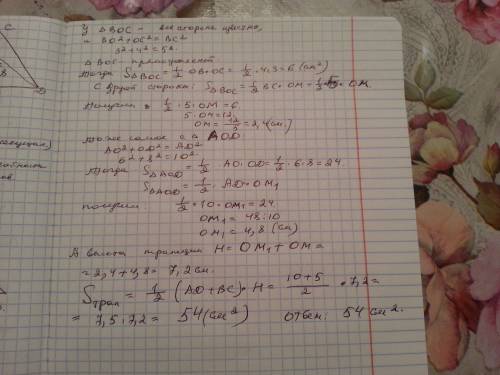 C
У ΔBOC - все стороны известны,
и BO²+OC² = BC²
3²+4² = 5².
ΔBOC - прямоугольный
Тогда SΔBOC = 1/2 · OB·OC = 1/2 · 4·3 = 6 (см²)
8
D
С другой стороны: SΔBOC = 1/2 BC · OM = 1/2 · 5 · OM.
Получим 1/2 · 5 · OM = 6
5 · OM = 12
OM = 12/5 = 2,4 (см)
То же самое с Δ AOD
AO²+OD² = AD²
6²+8² = 10²
Тогда SΔAOD = 1/2 AO·OD = 1/2 · 6·8 = 24
SΔAOD = 1/2 · AD·OM₁
получим 1/2 · 10 · OM₁ = 24
OM₁ = 48:10
OM₁ = 4,8 (см)
А высота трапеции H = OM₁ + OM =
= 2,4 + 4,8 = 7,2 см.
Sтрап = 1/2 (AD+BC)·H = 10+5/2 · 7,2 =
= 7,5 · 7,2 = 54 (см²) Ответ: 54 см².